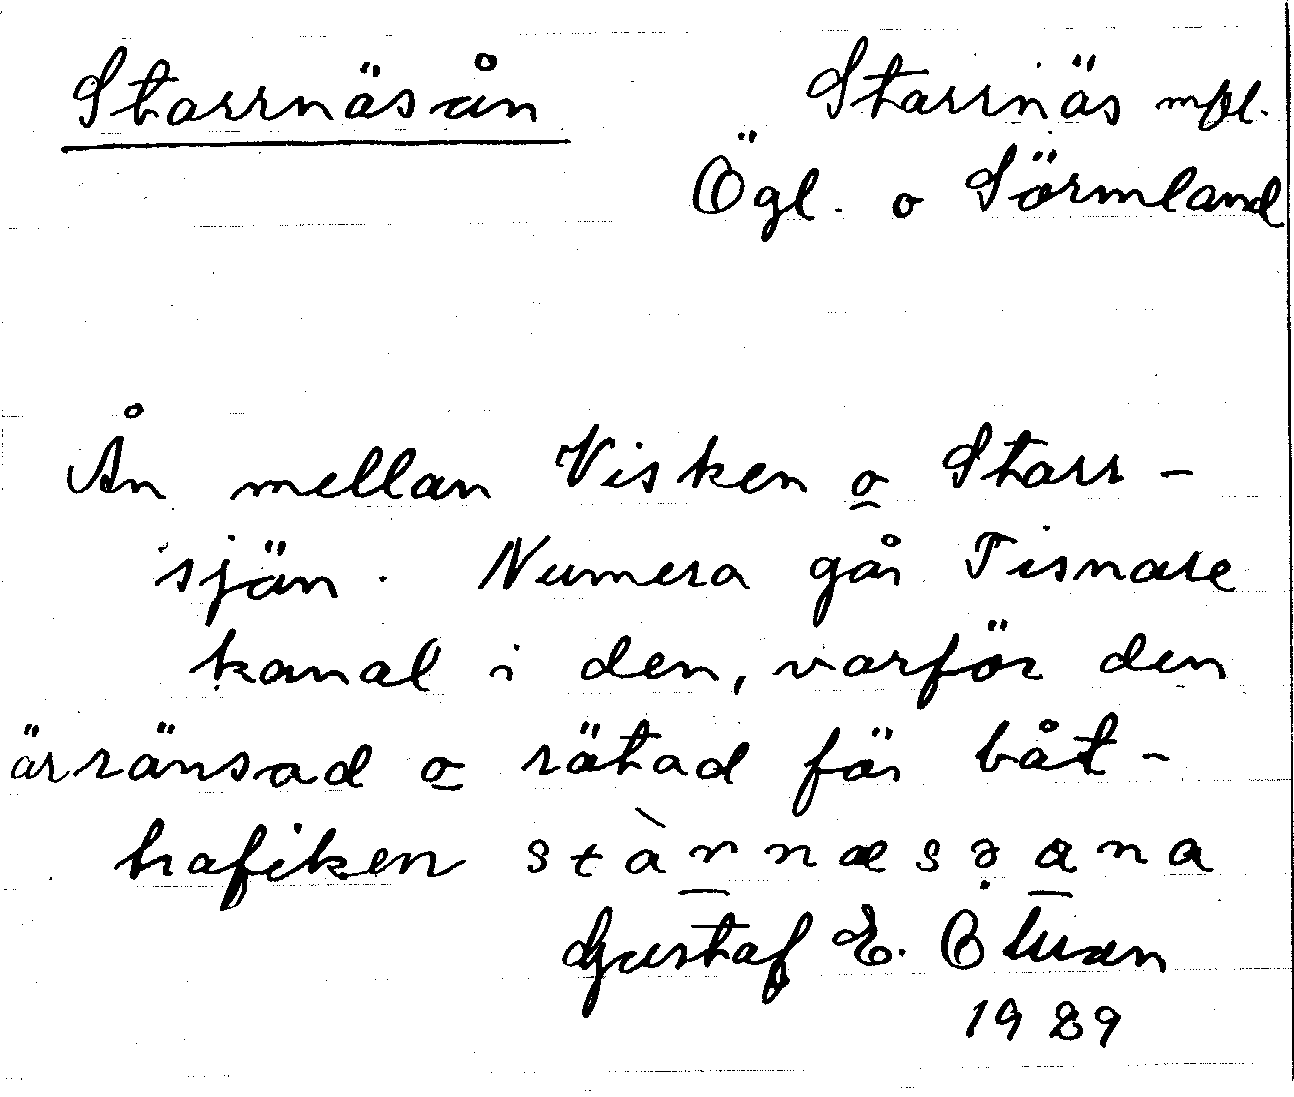 Starrnäsån Starrnäs mfl.
Ögl. o Sörmland
Ån mellan Visken o Starr-
sjön. Numera går Tisnare
kanal i den, varför den
är ränsad o rätad för båt-
trafiken
Gustaf E.
1929